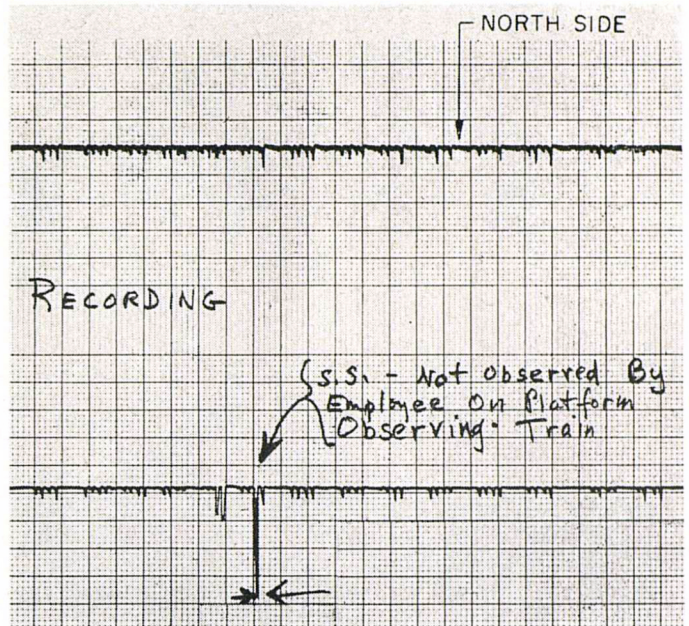 NORTH SIDE
RECORDING
S.S. - Not Observed By
Employee On Platform
Observing Train